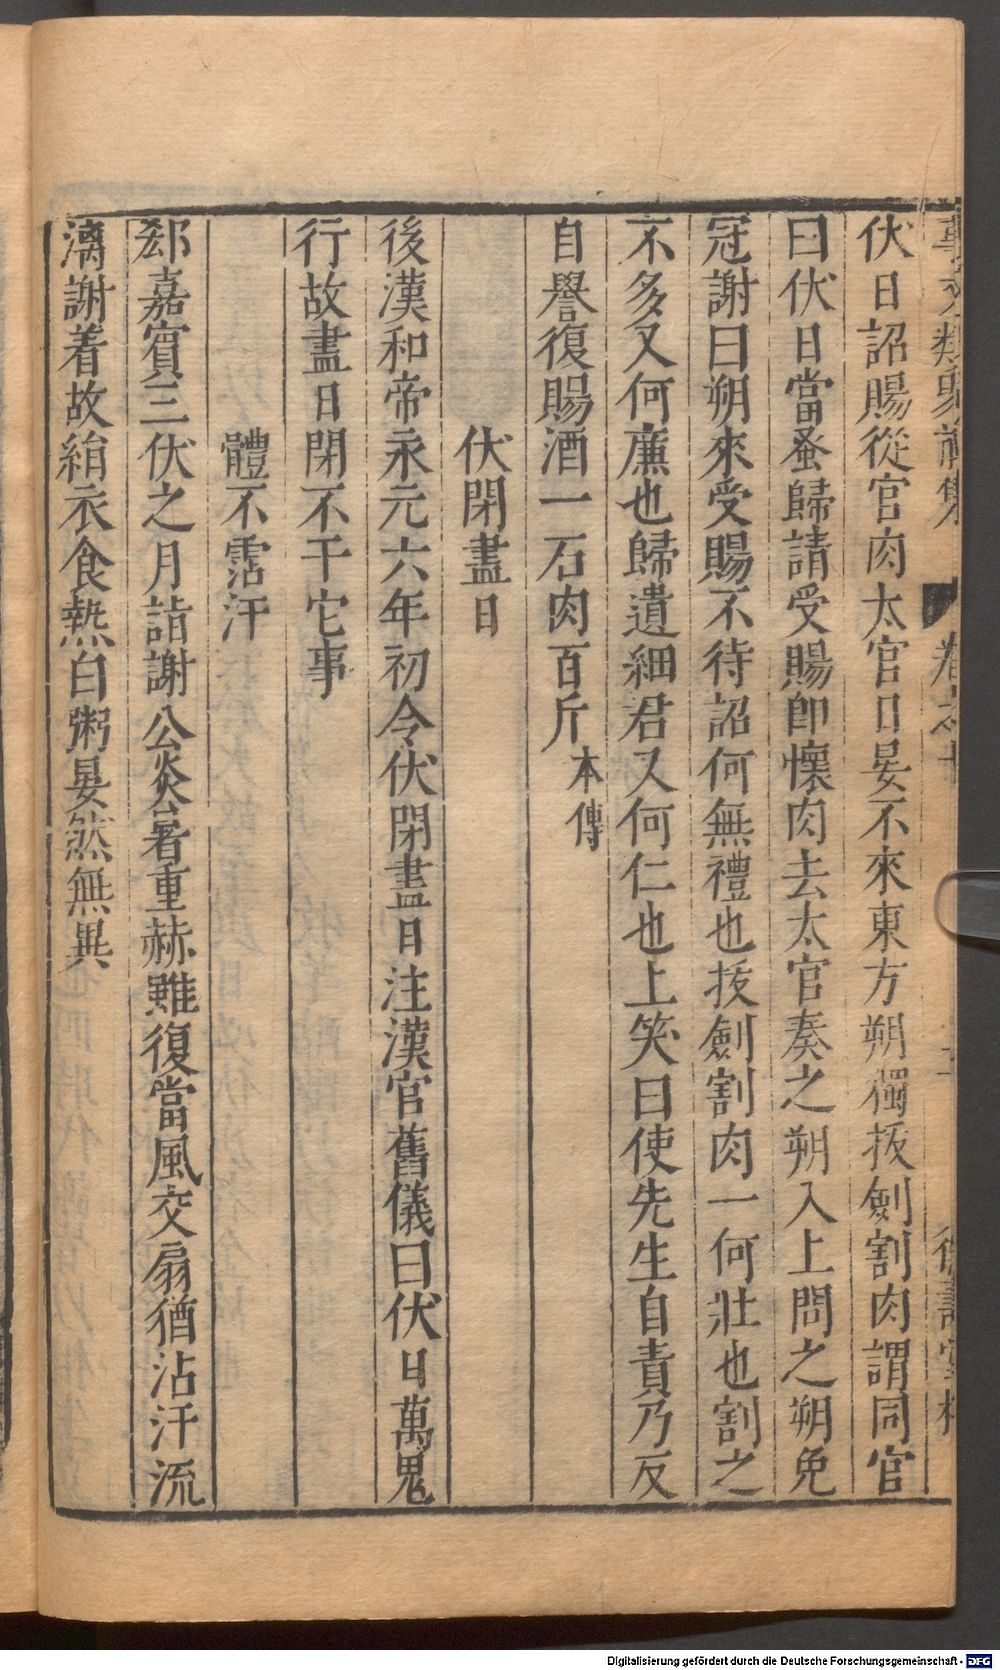 伏日詔賜從官肉太官日晏不來東方朔獨拔劍割肉謂同官
曰伏日當蚤歸請受賜即懷肉去太官奏之朔入上問之朔免
冠謝曰朔來受賜不待詔何無禮也拔劍割肉一何壯也割之
不多又何廉也歸遺細君又何仁也上笑曰使先生自責乃反
自譽復賜酒一石肉百斤本傳
伏閉晝日
後漢和帝永元六年初令伏閉晝日注漢官舊儀曰伏日萬鬼
行故晝日閉不干它事
體不霑汗
郄嘉賓三伏之月詣謝公炎暑熏赫雖復當風交扇猶沾汗流
漓謝着故絹衣食熱白粥晏然無異
Digitalisierung gefördert durch die Deutsche Forschungsgemeinschaft - DFG